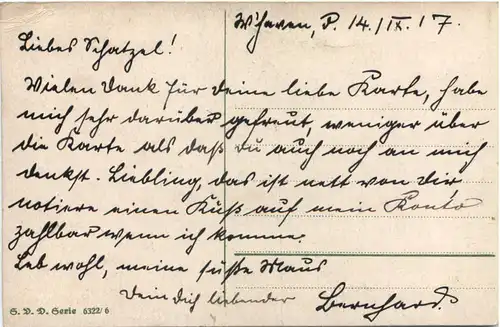 W'haven, P. 14/IX. 17.
Liebes Schatzel!
Vielen Dank für deine liebe Karte, habe
mich sehr darüber gefreut, weniger über
die Karte als daß du auch noch an mich
denkst. Liebling, das ist nett von dir
notiere einen Kuß auf mein Konto
zahlbar wenn ich komme.
Leb wohl, meine süße Maus
Dein dich liebender Bernhard.
S. V. D. Serie 6322/6